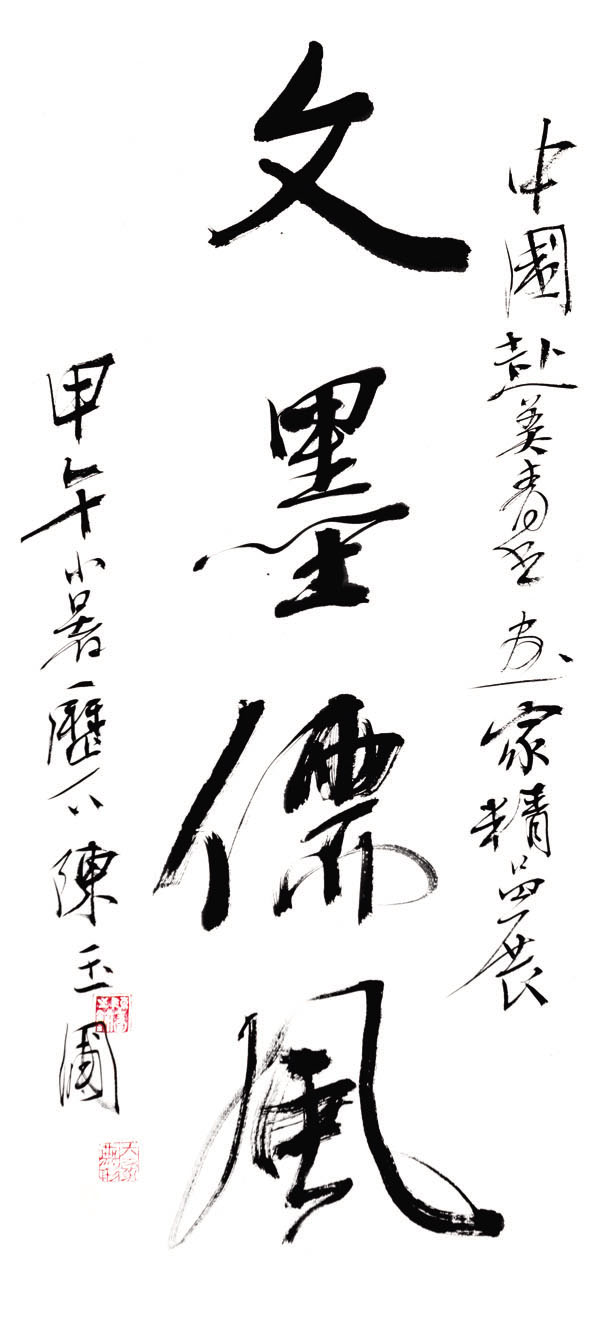 中國赴美青年書画家精品展
文墨儒風
甲午小暑歷下陳玉圃